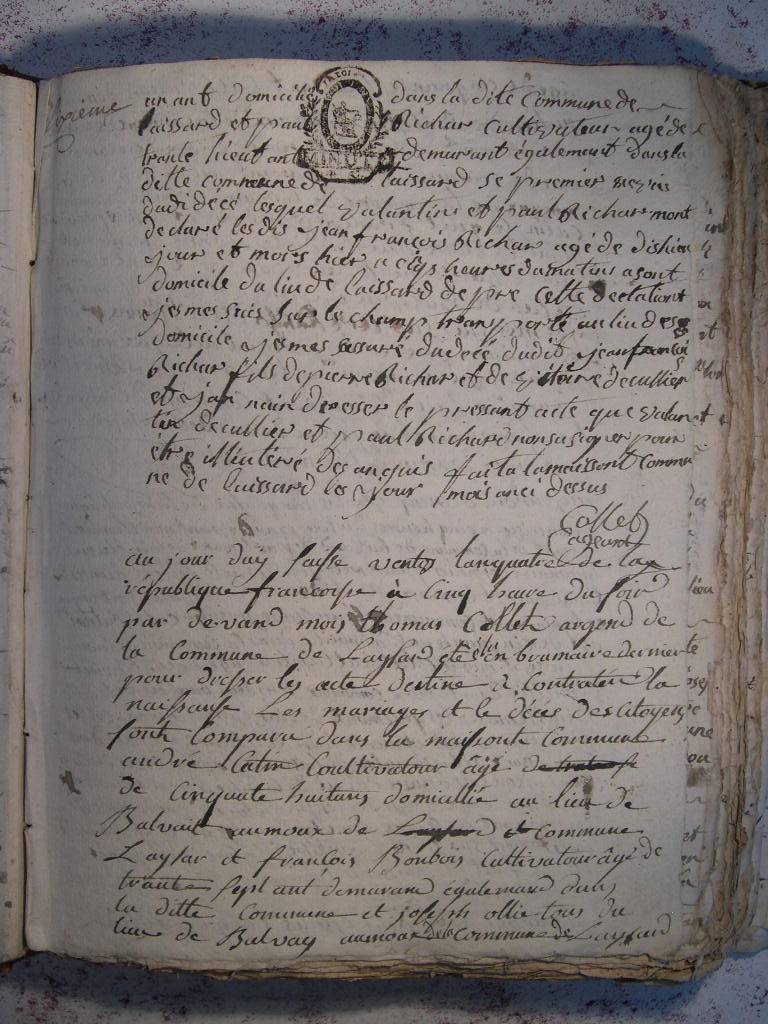 an ant domicilié dans la dite Commune de
laissard et paul Richar cultivateur agé de
trante hieut ant demurant également dans la
ditte commune de laissard se premier
dudi decé lesquel valantin et paul Richar mont
declaré les dis jean françois Richar agé de dishieu
jour et mois hier a cinq heures du matin a sont
domicile du liu de laissard de pre Cette declariont
je mes suis sur le champ transporté au liu des
domicile je mes assuré du decé dudit jean françois
Richar fils de pierre Richar et de vitoire decullier
et jan nain deresser le pressant acte que valan
tin decullier et paul Richard nonsasigner pour
étre illiateré des anquis fait a la maissont Commu
ne de laissard les jour mois an ci dessus
Collet
ageant
au jour duy saisse vento lanquatre de la
république francoisse à Cinq heure du soir
par devand mois thomas Collet argend de
la Commune de Layssard été élu en brumaire dernier
pour dresser les acte destine à Contrater la
naissanse Les mariages et le décés des Citoyen
sont Comparu dans la maissont Commune
andré Catin Coultivatour âgé
de Cinquate huit ans domicillié au lieu de
Balvait aumoux de Commune
Layssar et françois Bonbois Cultivatour âgé de
trante sept ant demurand également dans
la ditte Commune et joseph ollie tous du
lieu de Balvay aumoux de la Commune de Layssard
LA LOI
MINUTE